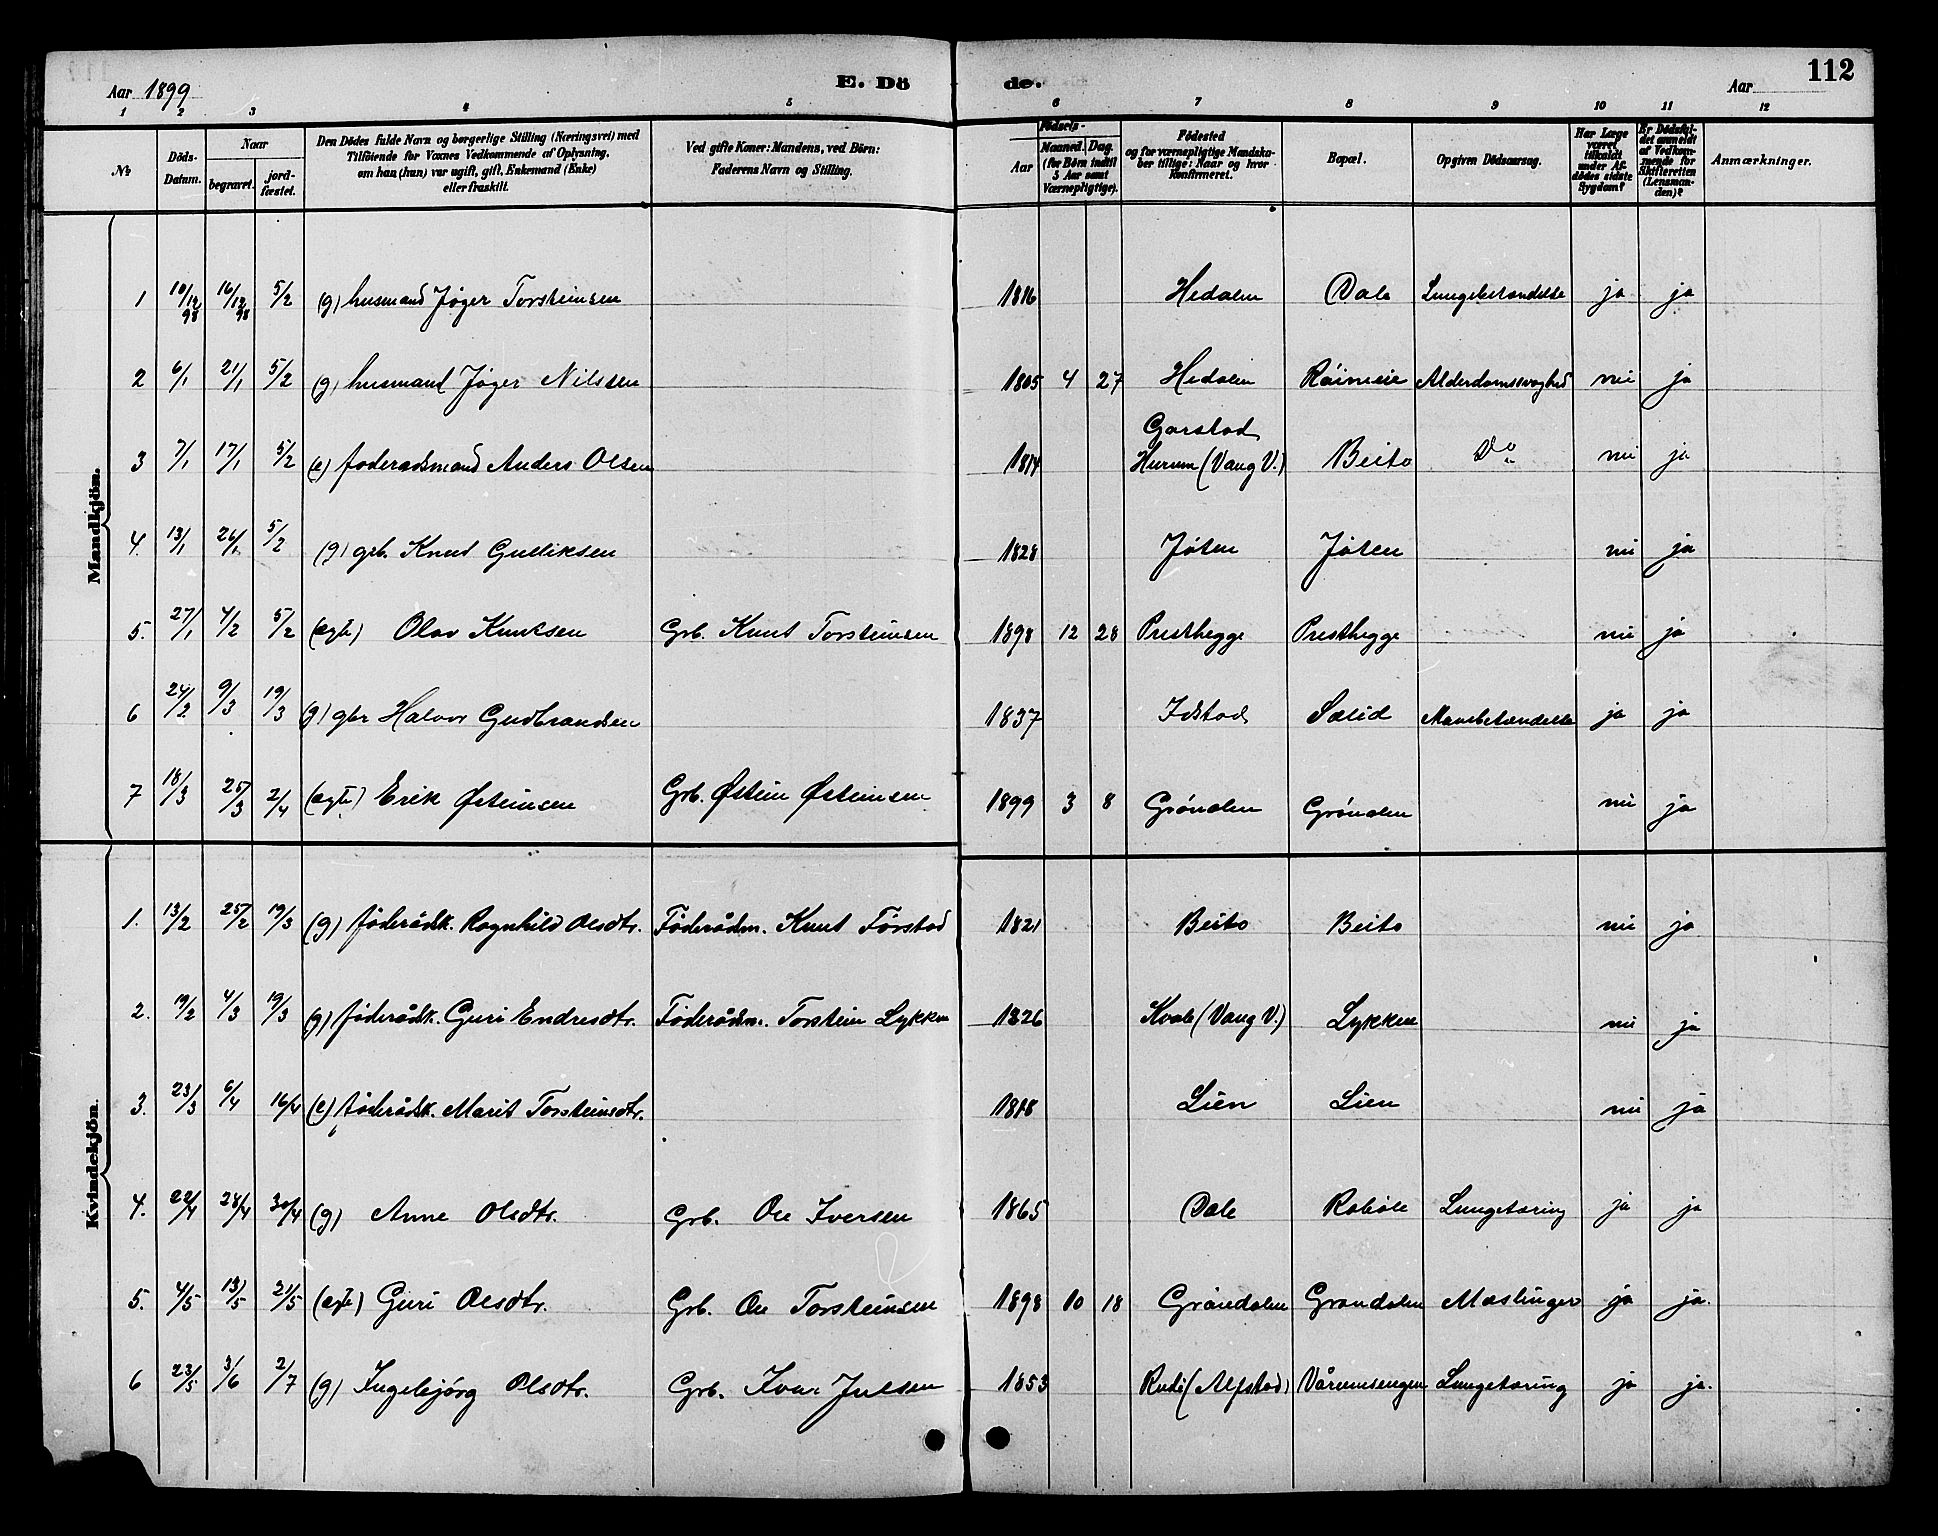 112
Aar 1899
E. Dö de.
Aar
1 2 3 4 5 6 7 8 9 10 11 12
№
Döds-Datum.
Naar
begravet.
jord-fæstet.
Den Dödes fulde Navn og borgerlige Stilling (Næringsvei) med Tilföiende for Voxnes Vedkommende af Oplysning, om han (hun) var ugift, gift, Enkemand (Enke) eller fraskilt.
Ved gifte Koner: Mandens, ved Börn: Faderens Navn og Stilling.
Födsels-
Aar
Maaned. Dag. (for Börn indtil 5 Aar samt Værnepligtige).
Födested og for værnepligtige Mandskaber tillige: Naar og hvor Konfirmeret.
Bopæl.
Opgiven Dödsaarsag.
Har Læge været tilkaldt under Afdödes sidste Sygdom?
Er Dödsfaldet anmeldt af Vedkommende for Skifteretten (Lensmanden)?
Anmærkninger.
Mandkjön.
1 10/12 98 16/12 98 5/2 (g) husmand Jøger Torsteinsen 1816 Hedalen Dale Lungebetændelse ja ja
2 6/1 21/1 5/2 (g) husmand Jøger Nilssen 1805 4 27 Hedalen Alderdomssvaghed nei ja
3 7/1 17/1 5/2 (e) foderaadsmand Anders Olsen 1814 Garstad Hurum (Vang V.) Beito Do nei ja
4. 13/1 26/1 5/2 (g) grb. Knut Gulliksen 1828 Jøten Jøten nei ja
5. 27/1 4/2 5/2 (ægte) Olav Knutsen Grb. Knut Torsteinsen 1898 12 28 Presthegge Presthegge nei ja
6 24/2 9/3 19/3 (g) gbr Halvor Gudbrandsen 1837 Idstad Sælid Mavebetændelse ja ja
7 18/3 25/3 2/4 (ægte) Erik Østeinsen Grb. Østein Østeinsen 1899 3 8 Grøndalen Grøndalen nei ja
Kvindekjön.
1. 13/2 25/2 19/3 (g) føderådsk. Ragnhild Olsdtr. Føderådsm. Knut Førstad 1821 Beito Beito nei ja
2. 19/2 4/3 19/3 (g) føderådsk. Guri Endresdtr. Føderådsm. Torstein Lykken 1826 Kvale (Vang V.) Lykken nei ja
3. 23/3 6/4 16/4 (e) føderådsk. Marit Torsteinsdtr. 1818 Lien Lien nei ja
4. 22/4 28/4 30/4 (g) Anne Olsdtr. Grb. Ole Iversen 1865 Dale Robøle Lungetæring ja ja
5. 4/5 13/5 21/5 (ægte) Guri Olsdtr. Grb. Ole Torsteinsen 1898 10 18 Grønedalen Grøndalen Mæslinger ja ja.
6 23/5 3/6 2/7 (g) Ingebjørg Olsdtr. Grb. Ivar Julsen 1853 Rudi (Alfstad) Vårumsengen Lungetæring ja ja.